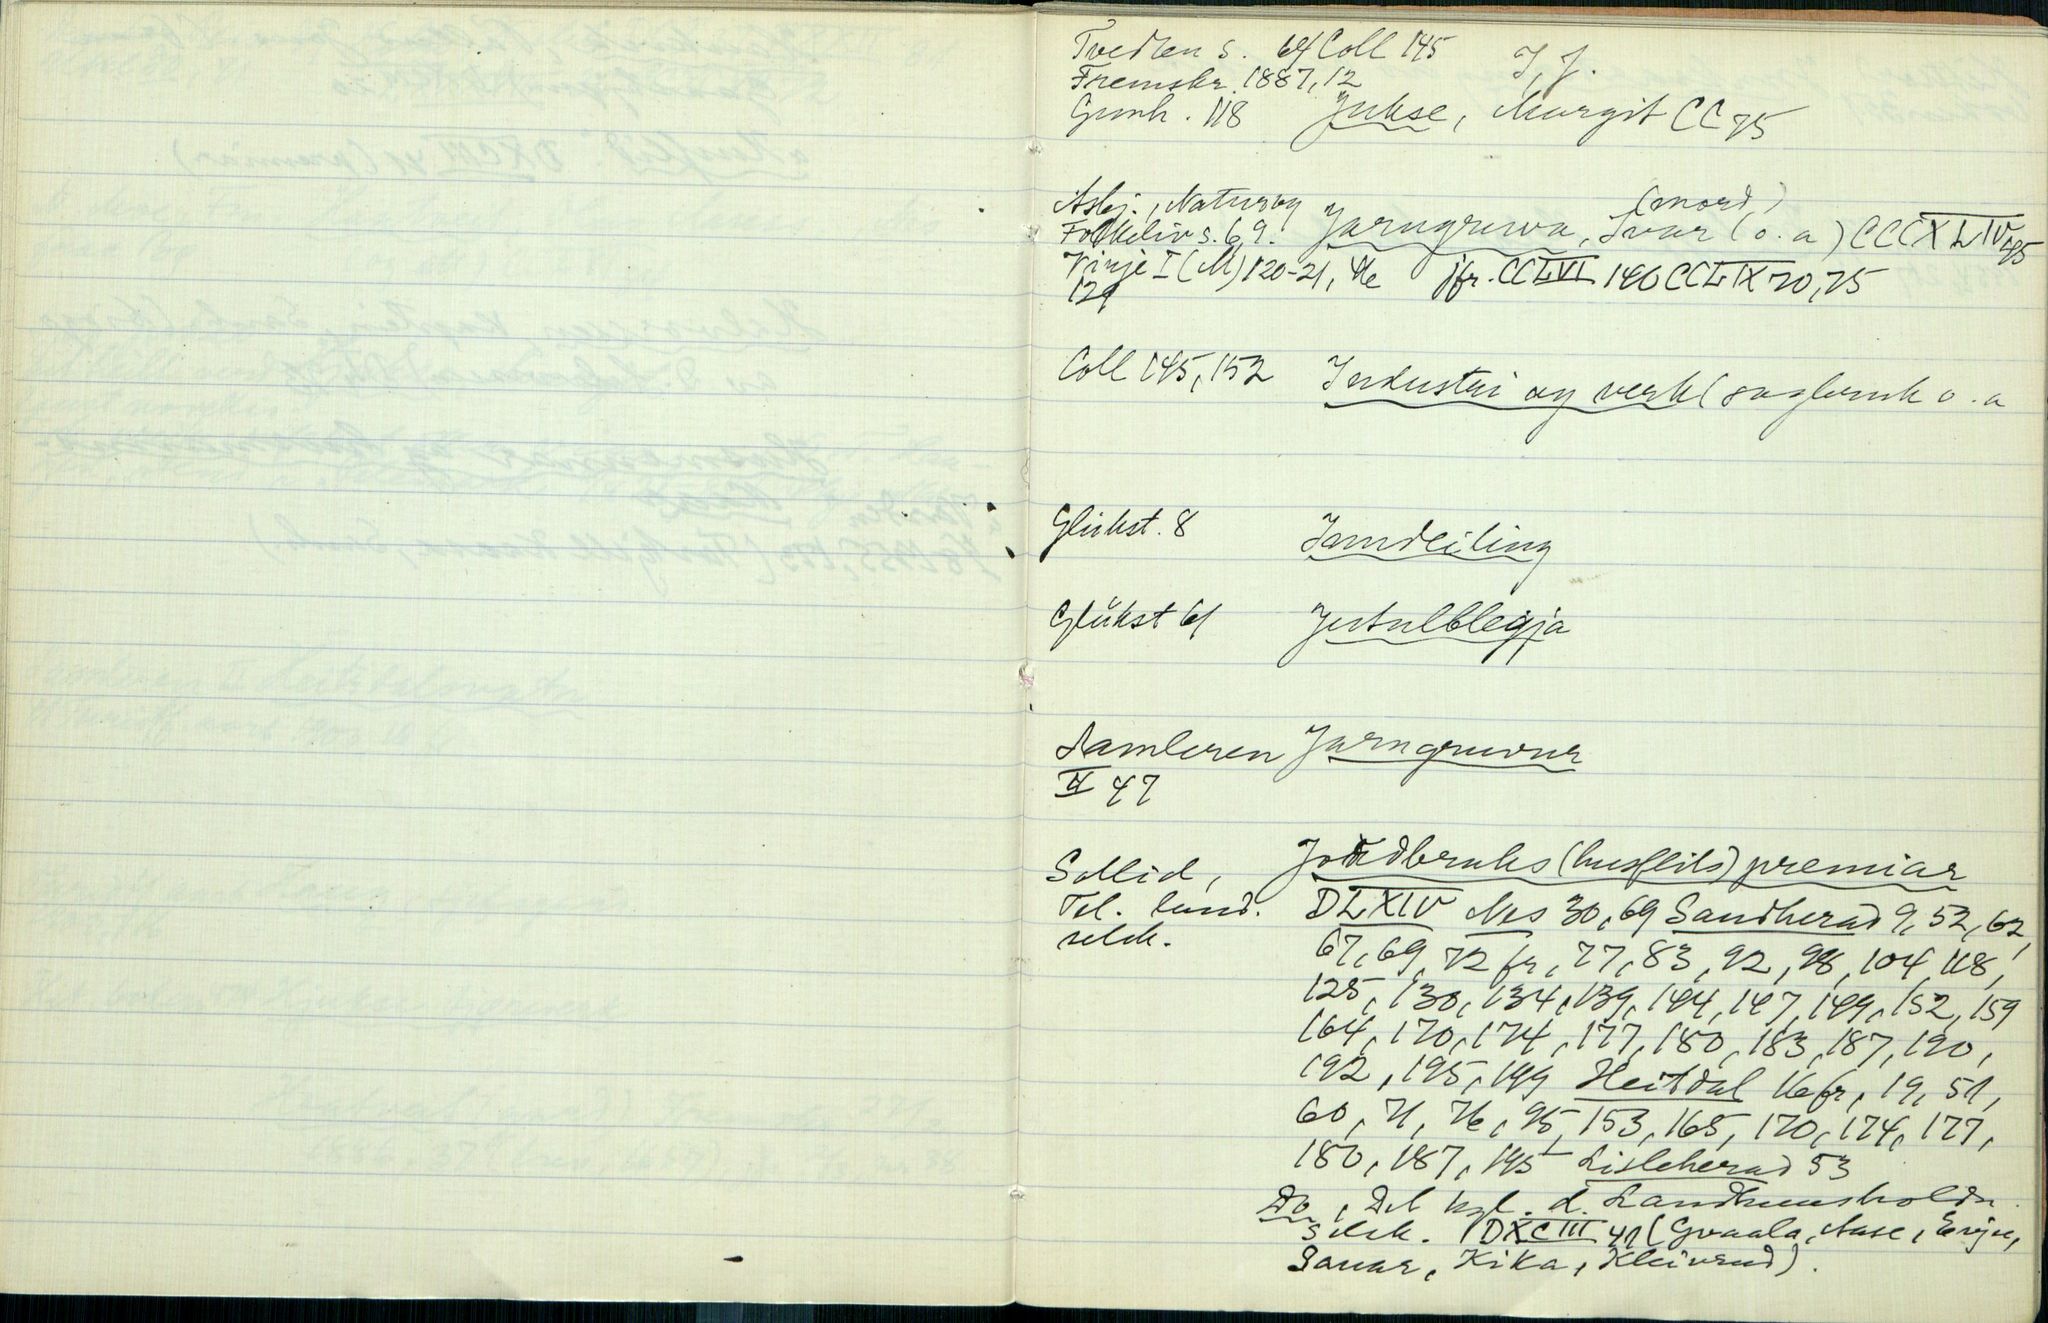 I, J.
Tvedten s. 64 Coll 145
Fremskr. 1887, 12
Gunh. 118 Jukse, Margit CC 75
Asbj., Natur og (mord)
Folkeliv s. 69. Jarngruva, Ivar (o.a) CCCXLIV 45
Vinje I (M) 120-21, jfr. CCLVI 140 CCLIX 70, 75
129
Coll 145, 152 Industri og verk (sagbruk o.a
Glükst. 8 Inndeiling
Glükst 61 Jutulbleigja
Samleren Jarngruvur
II 47
Sollid, Jordbruks (husflids) premiar
Tel. land. DLXIV Nes 30, 69 Sandherad 9, 52, 62,
selsk. 67, 69, 72 fr, 77, 83, 92, 98, 104, 118,
125, 130, 134, 139, 144, 147, 149, 152, 159
164, 170, 174, 177, 180, 183, 187, 190,
192, 195, 199 Heitdal 16 fr, 19, 51,
60, 71, 76, 95, 153, 165, 170, 174, 177,
180, 187, 195 Lisleherad 53
Do, Det kgl. d. Landhuusholdn.
selsk. DXCIII 41 (Gvaala, Aase, Evju,
Sanar, Kika, Kleivrud).